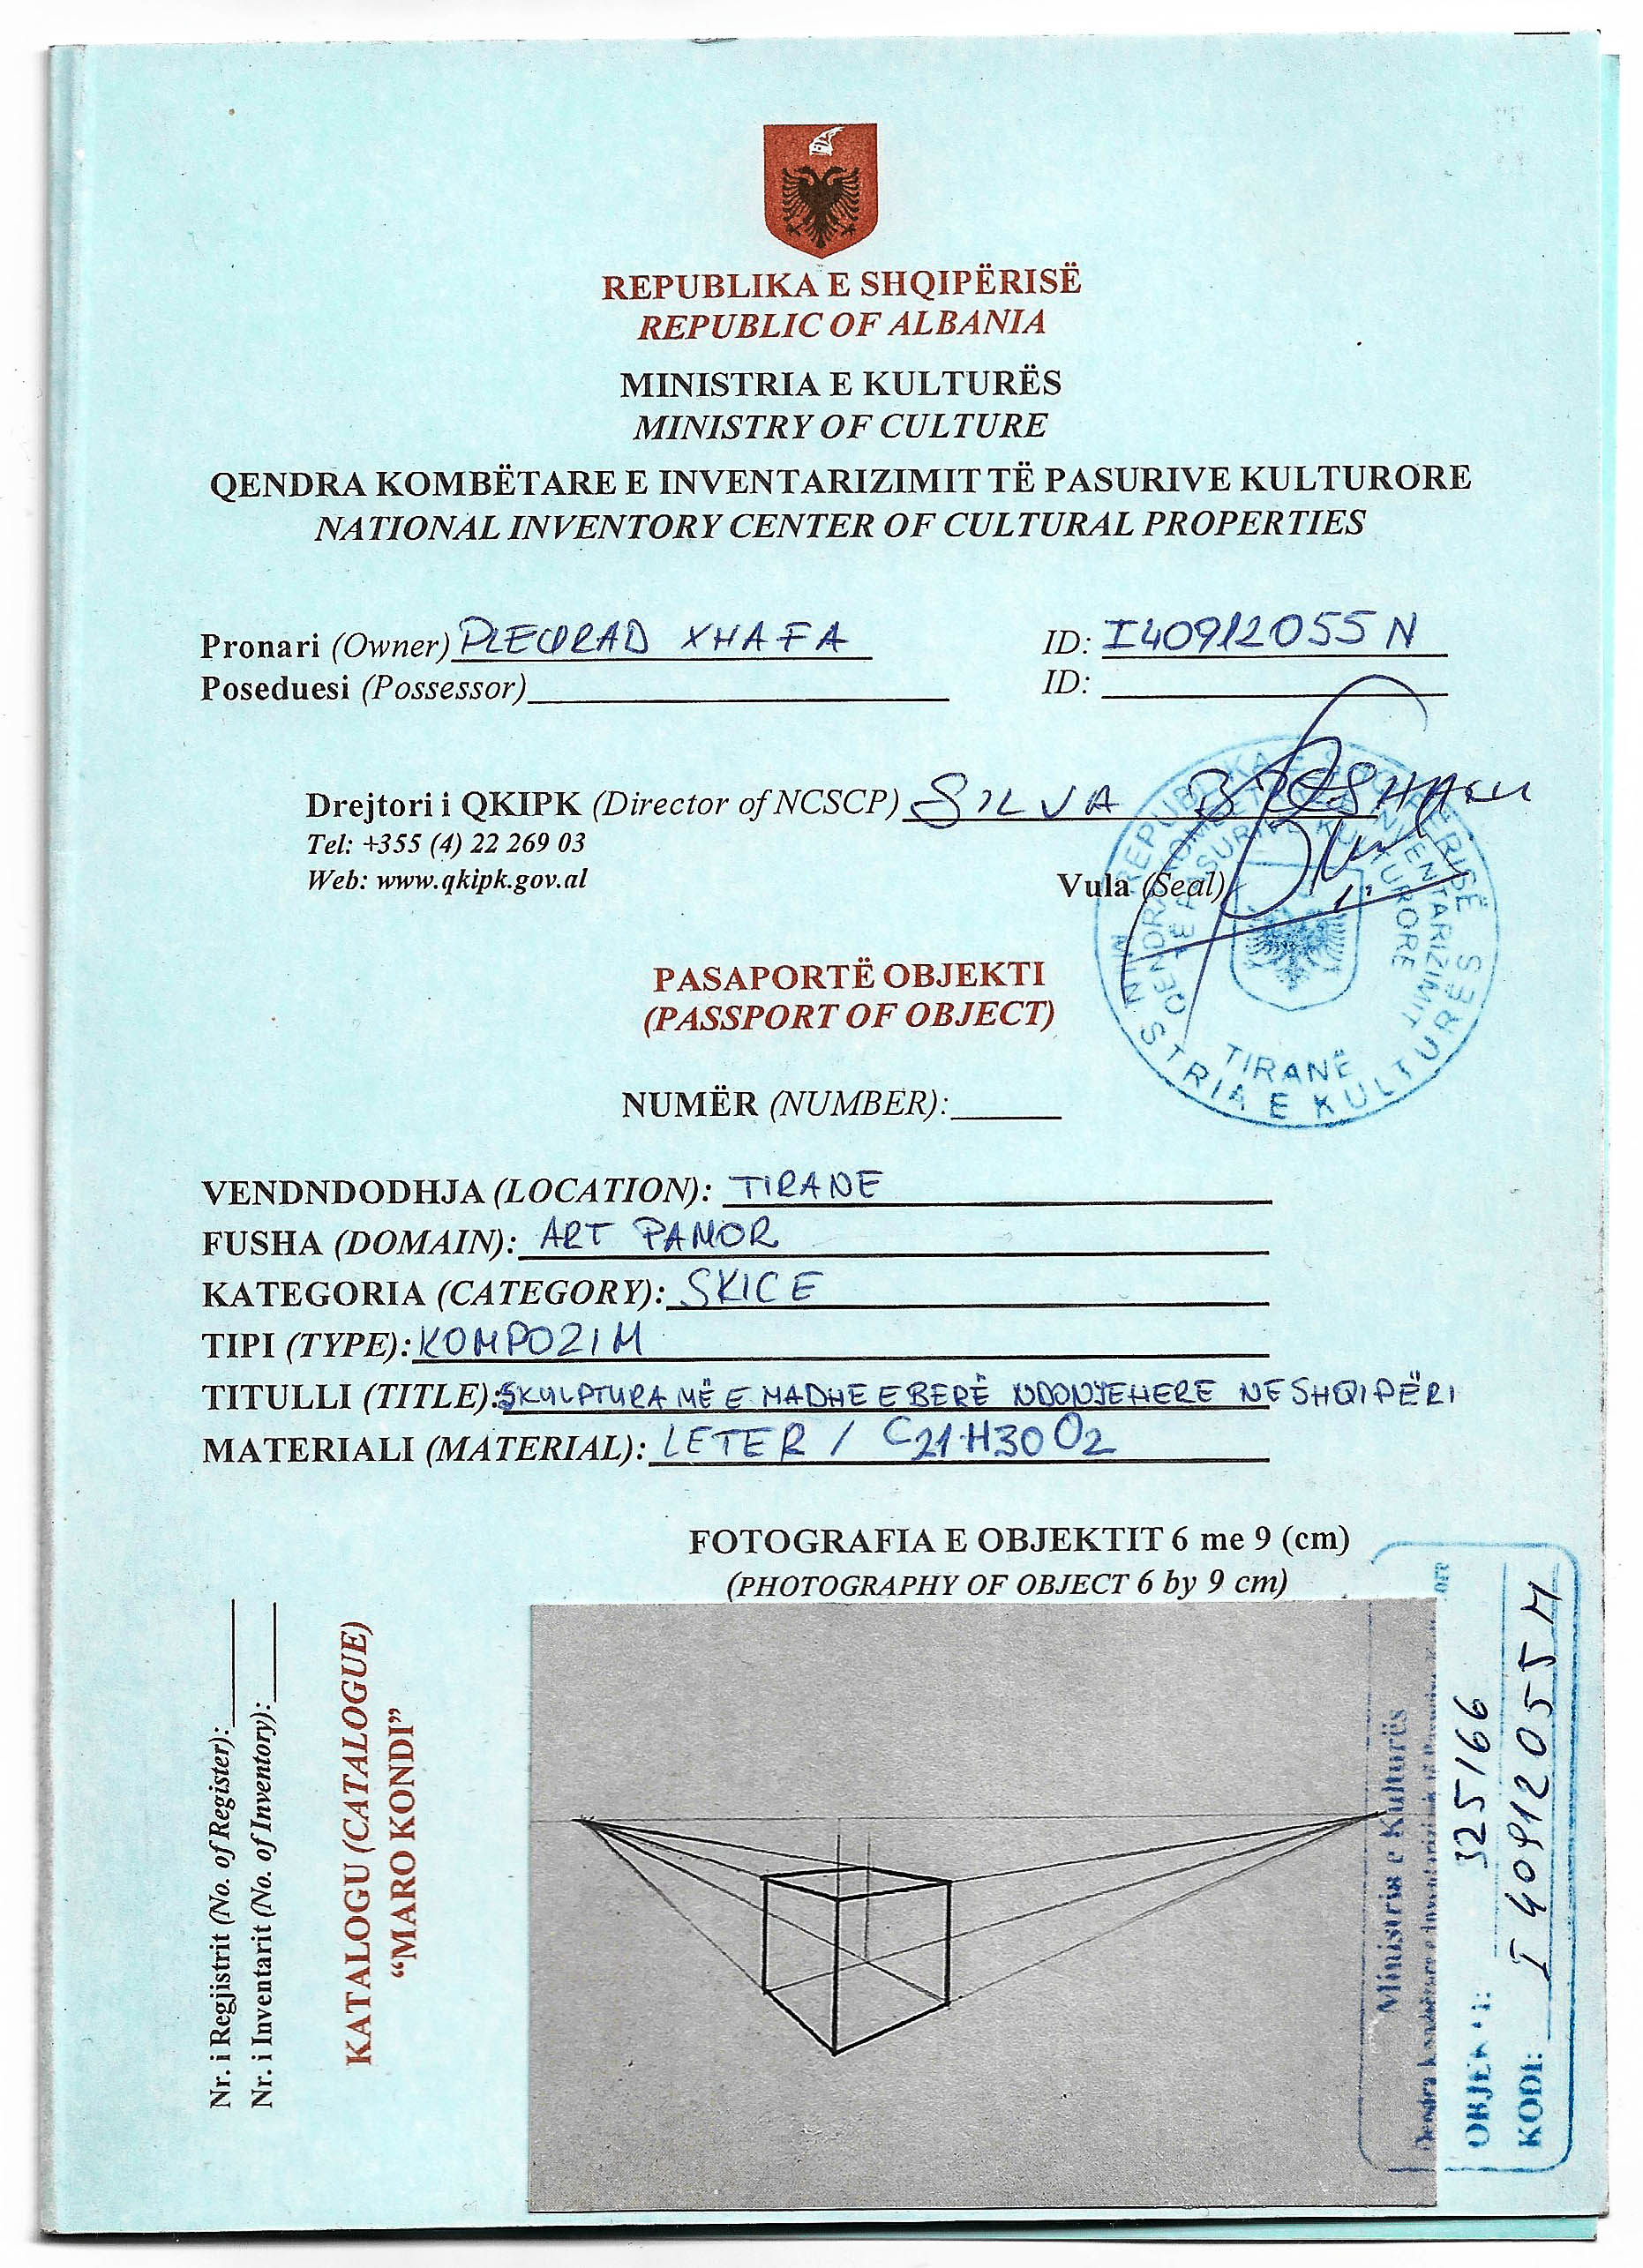 REPUBLIKA E SHQIPËRISË
REPUBLIC OF ALBANIA
MINISTRIA E KULTURËS
MINISTRY OF CULTURE
QENDRA KOMBËTARE E INVENTARIZIMIT TË PASURIVE KULTURORE
NATIONAL INVENTORY CENTER OF CULTURAL PROPERTIES
Pronari (Owner) PLEURAD XHAFA ID: I40912055N
Poseduesi (Possessor) ID:
Drejtori i QKIPK (Director of NCSCP) SILVA
Tel: +355 (4) 22 269 03
Web: www.qkipk.gov.al
Vula (Seal)
REPUBLIKA E SHQIPËRISË
MINISTRIA E KULTURËS
QENDRA KOMBËTARE E INVENTARIZIMIT
TË PASURIVE KULTURORE
TIRANË
PASAPORTË OBJEKTI
(PASSPORT OF OBJECT)
NUMËR (NUMBER):
VENDNDODHJA (LOCATION): TIRANE
FUSHA (DOMAIN): ART PAMOR
KATEGORIA (CATEGORY): SKICE
TIPI (TYPE): KOMPOZIM
TITULLI (TITLE): SKULPTURA MË E MADHE E BERË NDONJEHERE NE SHQIPËRI
MATERIALI (MATERIAL): LETER / C21H30O2
FOTOGRAFIA E OBJEKTIT 6 me 9 (cm)
(PHOTOGRAPHY OF OBJECT 6 by 9 cm)
Nr. i Regjistrit (No. of Register):
Nr. i Inventarit (No. of Inventory):
KATALOGU (CATALOGUE)
“MARO KONDI”
Ministria e Kulturës
OBJEKTI: 325/66
KODI: I40912055N